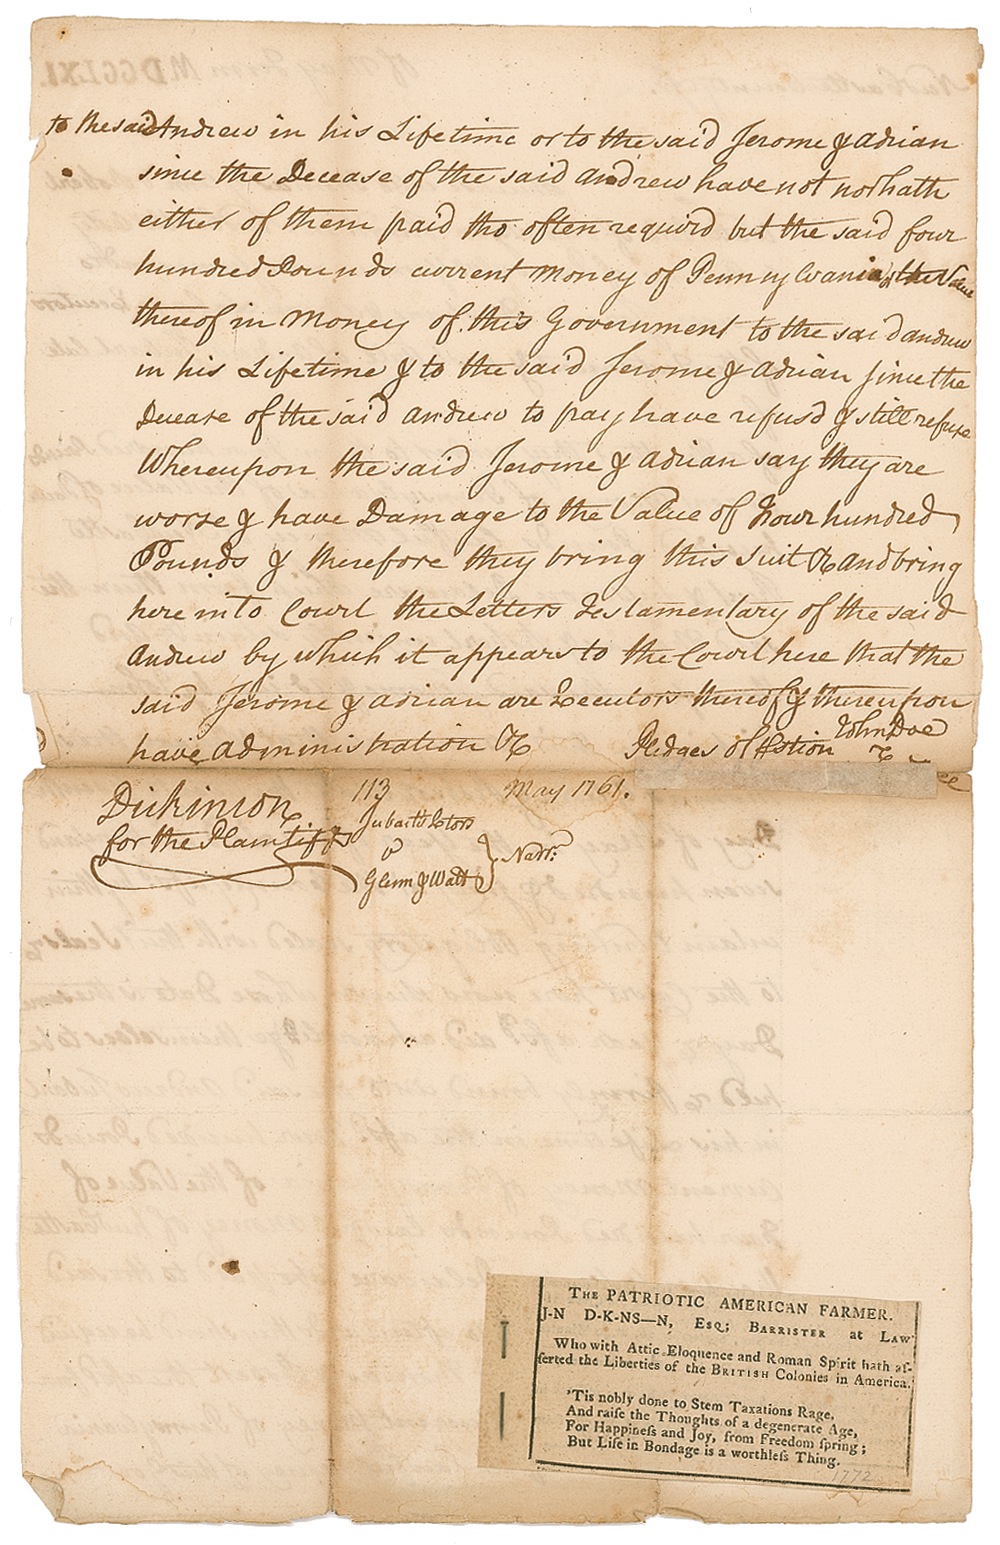 to the said Andrew in his Lifetime or to the said Jerome & Adrian
since the Decease of the said Andrew have not nor hath
either of them paid tho often requird but the said four
hundred Pounds current Money of Pennsylvania or the Value
thereof in Money of this Government to the said Andrew
in his Lifetime & to the said Jerome & Adrian since the
Decease of the said Andrew to pay have refusd & still refuse
Whereupon the said Jerome & Adrian say they are
worse & have Damage to the Value of Four hundred
Pounds & therefore they bring this Suit &c and bring
here into Court the Letters Testamentary of the said
Andrew by which it appears to the Court here that the
said Jerome & Adrian are Executors thereof & thereupon
have administration &c Pledges of John Doe
&c
Dickinson
for the Plaintiffs
113 May 1761.
v
Glenn & Watt
Narr:
MDCCLXI.
THE PATRIOTIC AMERICAN FARMER.
J-N D-K-NS—N, ESQ; BARRISTER at LAW
Who with Attic Eloquence and Roman Spirit hath as-
ſerted the Liberties of the BRITISH Colonies in America.
'Tis nobly done to Stem Taxations Rage,
And raiſe the Thoughts of a degenerate Age,
For Happineſs and Joy, from Freedom ſpring;
But Life in Bondage is a worthleſs Thing.
1772